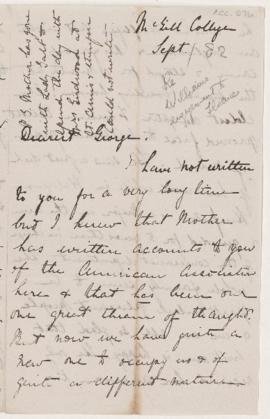 McGill College
Sept / 82
P.S. Mother has gone
with Lady Galt to
spend the day with
Mrs Redwood at
St. Anne's & therefore
could not write
Re
Williams
engagement to
Dearest George.
I have not written
to you for a very long time
but I knew that Mother
has written accounts to you
of the American Association
here & that has been our
one great theme of thought.
But now we have quite a
new one to occupy us & of
quite a different nature